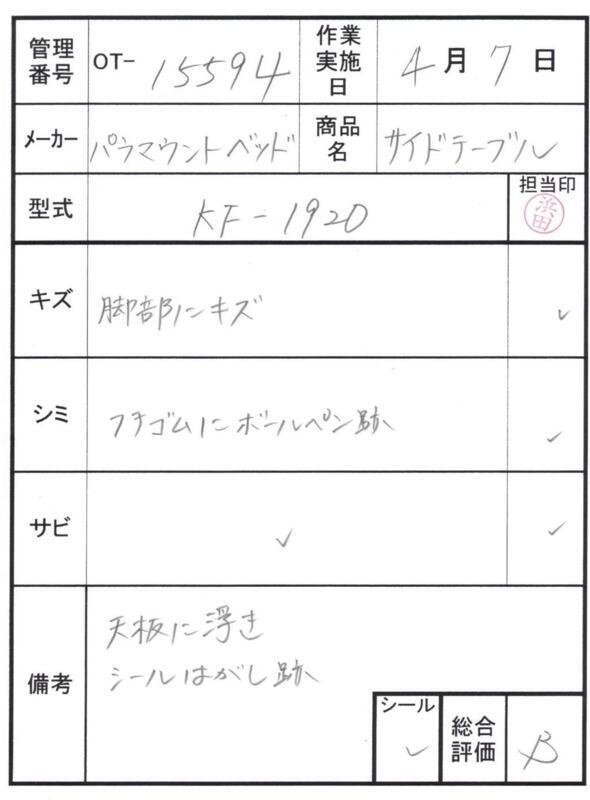 管理番号 OT- 15594 作業実施日 4月7日
メーカー パラマウントベッド 商品名 サイドテーブル
型式 KF-1920 担当印 浜田
キズ 脚部にキズ ✓
シミ フチゴムにボールペン跡 ✓
サビ ✓ ✓
備考 天板に浮き
シールはがし跡
シール ✓ 総合評価 B